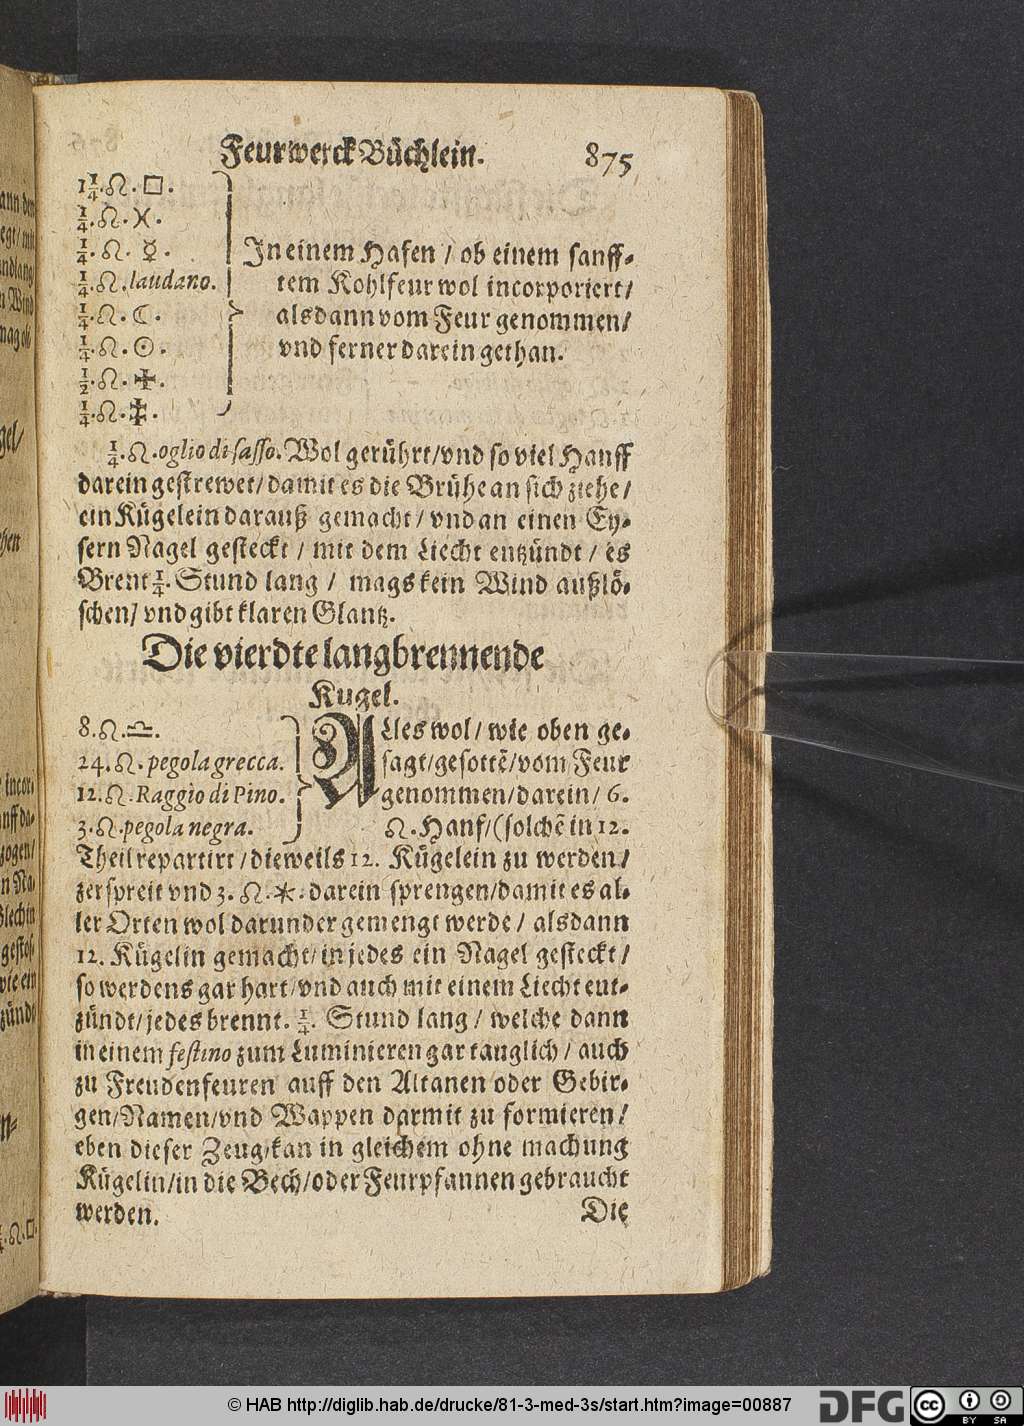 Feurwerck Büchlein. 875
1 1/4. ♌. □.
1/4. ♌. ♓.
1/4. ♌. ☿.
1/4. ♌. laudano.
1/4. ♌. ☾.
1/4. ♌. ☉.
1/2. ♌. ✠.
1/4. ♌. ‡.
In einem Hafen / ob einem sanff-
tem Kohlfeur wol incorporiert /
alsdann vom Feur genommen /
vnd ferner darein gethan.
1/4. ♌. oglio di sasso. Wol gerührt / vnd so viel Hanff
darein gestrewet / damit es die Brühe an sich ziehe /
ein Kügelein darauß gemacht / vnd an einen Ey-
sern Nagel gesteckt / mit dem Liecht entzündt / es
Brent 1/4. Stund lang / mags kein Wind außlö-
schen / vnd gibt klaren Glantz.
Die vierdte langbrennende
Kugel.
8. ♌. ♎.
24. ♌. pegola grecca.
12. ♌. Raggio di Pino.
3. ♌. pegola negra.
ALles wol / wie oben ge-
sagt / gesottē / vom Feur
genommen / darein / 6.
♌. Hanf / (solchē in 12.
Theil repartirt / dieweils 12. Kügelein zu werden /
zerspreit vnd 3. ♌. ✶. darein sprengen / damit es al-
ler Orten wol darunder gemengt werde / alsdann
12. Kügelin gemacht / in jedes ein Nagel gesteckt /
so werdens gar hart / vnd auch mit einem Liecht ent-
zündt / jedes brennt. 1/4. Stund lang / welche dann
in einem festino zum Luminieren gar tauglich / auch
zu Freudenfeuren auff den Altanen oder Gebir-
gen / Namen / vnd Wappen darmit zu formieren /
eben dieser Zeug / kan in gleichem ohne machung
Kügelin / in die Bech / oder Feurpfannen gebraucht
werden. Die
© HAB http://diglib.hab.de/drucke/81-3-med-3s/start.htm?image=00887
DFG
cc BY SA